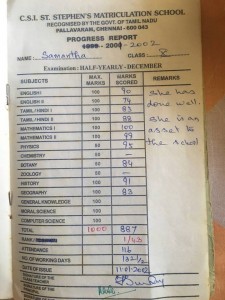 C.S.I. ST. STEPHEN'S MATRICULATION SCHOOL
RECOGNISED BY THE GOVT. OF TAMIL NADU
PALLAVARAM, CHENNAI - 600 043
PROGRESS REPORT
1999 - 2001 - 2002
NAME: Samantha CLASS X
Examination: HALF-YEARLY - DECEMBER
SUBJECTS MAX. MARKS MARKS SCORED REMARKS
ENGLISH I 100 90 She has
ENGLISH II 100 74 done well.
TAMIL / HINDI I 100 83
TAMIL / HINDI II 100 88 She is an
MATHEMATICS I 100 100 asset to
MATHEMATICS II 100 99 the school
PHYSICS 100 95
CHEMISTRY 100 -
BOTANY 100 84
ZOOLOGY - -
HISTORY 100 91
GEOGRAPHY 100 83
GENERAL KNOWLEDGE 100
MORAL SCIENCE 100
COMPUTER SCIENCE 100
TOTAL 1000 887
RANK
ATTENDANCE 116
NO. OF WORKING DAYS
DATE OF ISSUE